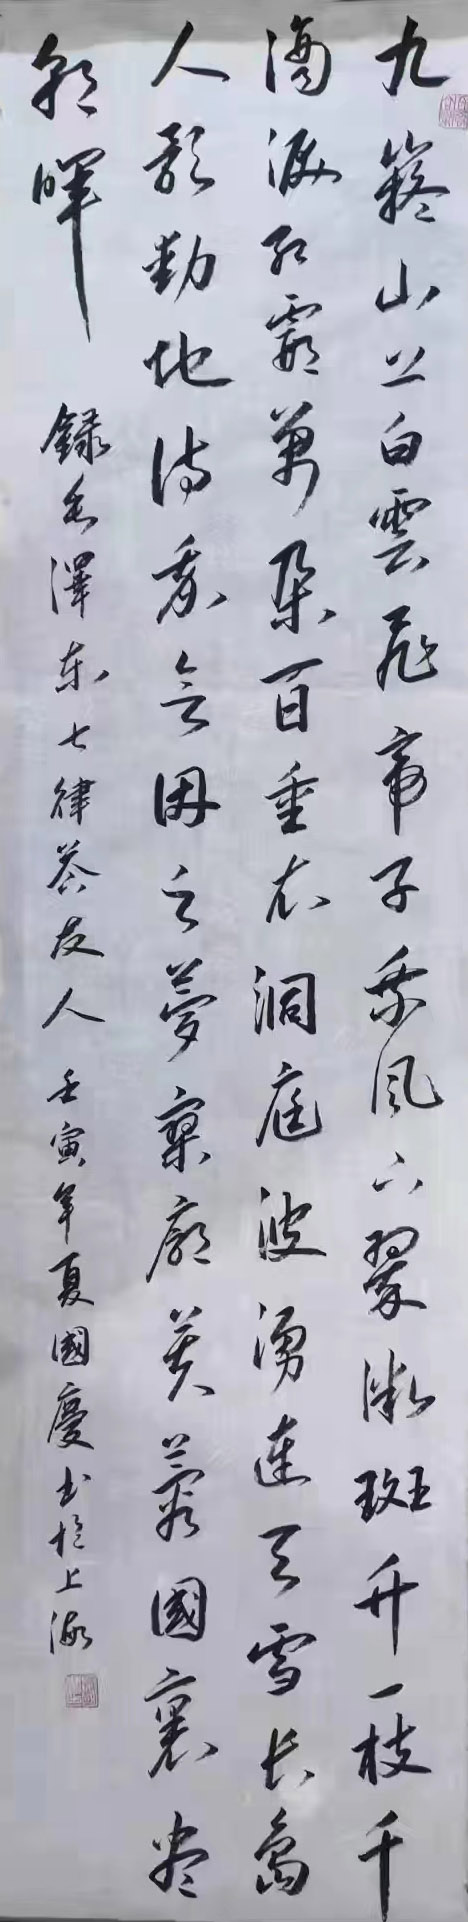 九嶷山上白雲飛帝子乘風下翠微斑竹一枝千
滴淚紅霞萬朵百重衣洞庭波湧連天雪長島
人歌動地詩我欲因之夢寥廓芙蓉國裏盡
朝暉 錄毛澤东七律答友人 壬寅年夏國慶書於上海